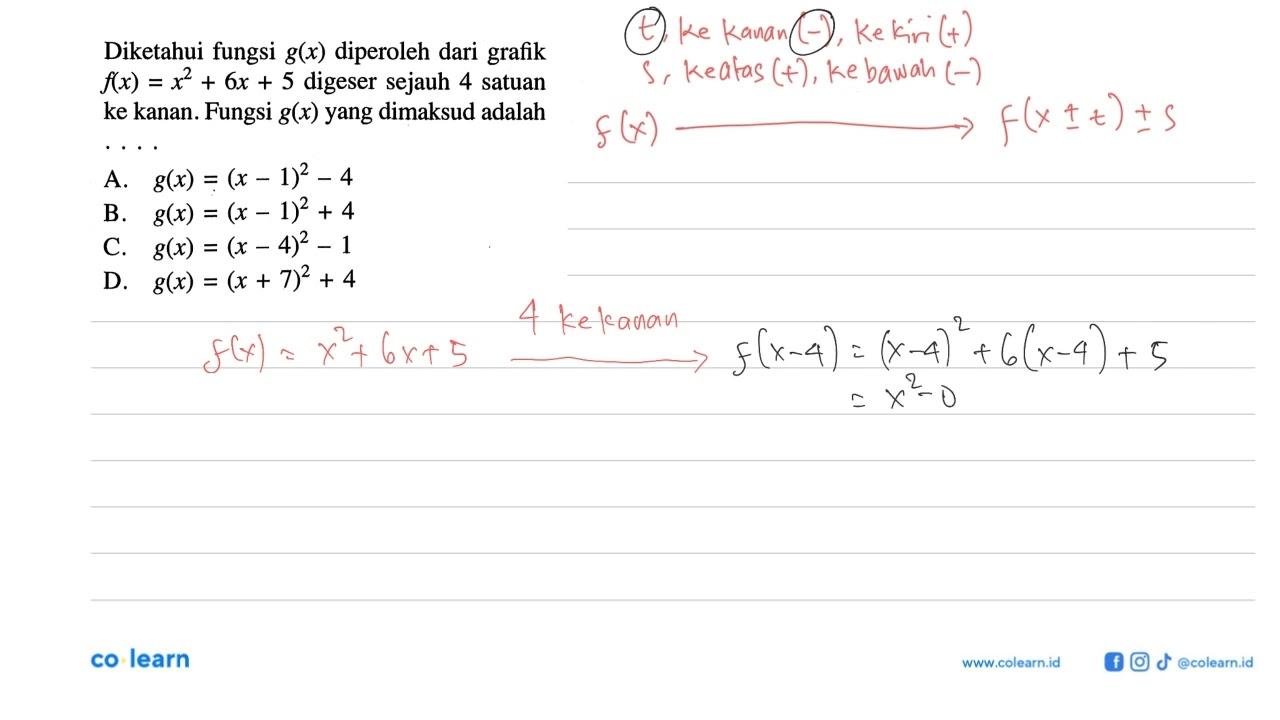 Diketahui fungsi g(x) diperoleh dari grafik
f(x) = x² + 6x + 5 digeser sejauh 4 satuan
ke kanan. Fungsi g(x) yang dimaksud adalah
. . . .
A. g(x) = (x − 1)² − 4
B. g(x) = (x − 1)² + 4
C. g(x) = (x − 4)² − 1
D. g(x) = (x + 7)² + 4
t, ke kanan (−), ke kiri (+)
s, ke atas (+), ke bawah (−)
f(x) ⟶ f(x ± t) ± s
4 ke kanan
f(x) = x² + 6x + 5 ⟶ f(x−4) = (x−4)² + 6(x−4) + 5
= x² − 0
co learn
www.colearn.id
@colearn.id